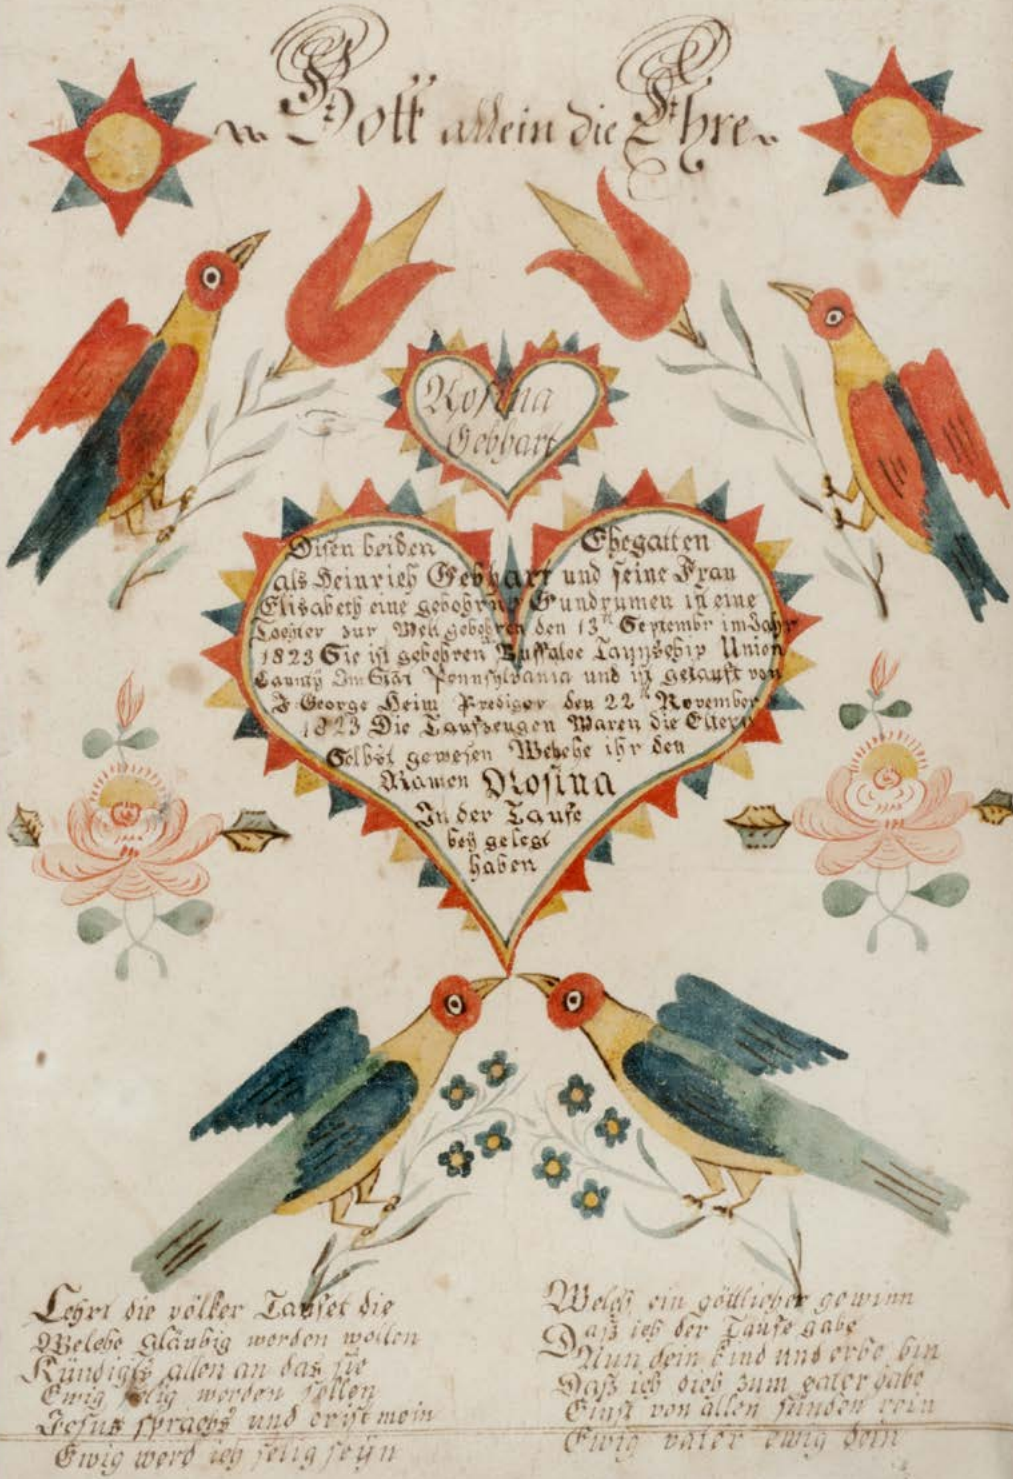 Gott allein die Ehre
Rosina
Gebhart
Disen beiden Ehegatten
als Heinrich Gebhart und seine Frau
Elisabeth eine gebohrne Gundrumen ist eine
Tochter zur Welt gebohren den 13tn Septembr im Jahr
1823 Sie ist gebohren Buffaloe Taunschip Union
Caunty Im Stat Pennsylvania und ist getauft von
J. George Heim Prediger den 22tn November
1823 Die Taufzeugen Waren die Eltern
Selbst gewesen Welche ihr den
Namen Rosina
In der Taufe
bey gelegt
haben
Lehrt die völker Taufet die
Welche gläubig werden wollen
Kündigts allen an das sie
Ewig selig werden sollen
Jesus sprachs und er ist mein
Ewig werd ich selig seyn
Welch ein göttlicher gewinn
Daß ich der Taufe gabe
Nun dein kind und erbe bin
Daß ich dich zum vater habe
Einst von allen sünden rein
Ewig vater ewig dein